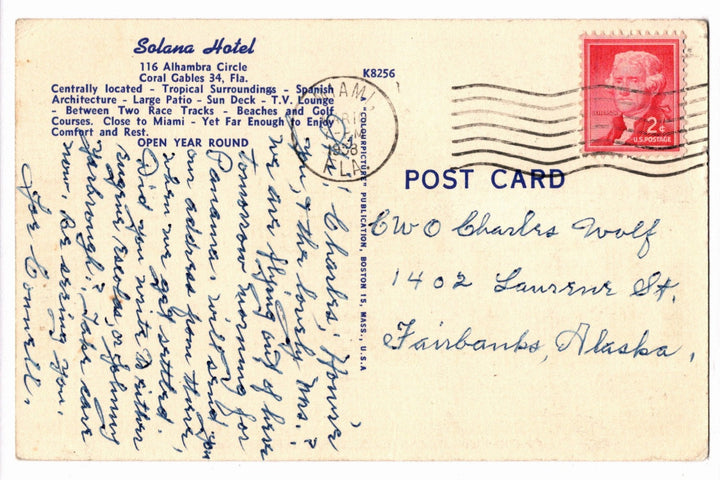 Solana Hotel
116 Alhambra Circle
Coral Gables 34, Fla.
Centrally located - Tropical Surroundings - Spanish
Architecture - Large Patio - Sun Deck - T.V. Lounge
- Between Two Race Tracks - Beaches and Golf
Courses. Close to Miami - Yet Far Enough to Enjoy
Comfort and Rest.
OPEN YEAR ROUND
K8256
A "COLOURPICTURE" PUBLICATION, BOSTON 15, MASS., U.S.A
MIAMI
FLA
2¢
U.S. POSTAGE
POST CARD
CWO Charles Wolf
1402 Laurene St.
Fairbanks, Alaska.
Hi Charles! How're
you, & the lovely Mrs.?
We are flying out of here
tomorrow morning for
Panama. Will send you
our address from there,
when we get settled.
Did you write Brither
Eugene, or Johnny
Yarbrough? Take care
now, be seeing you.
Joe Connell.